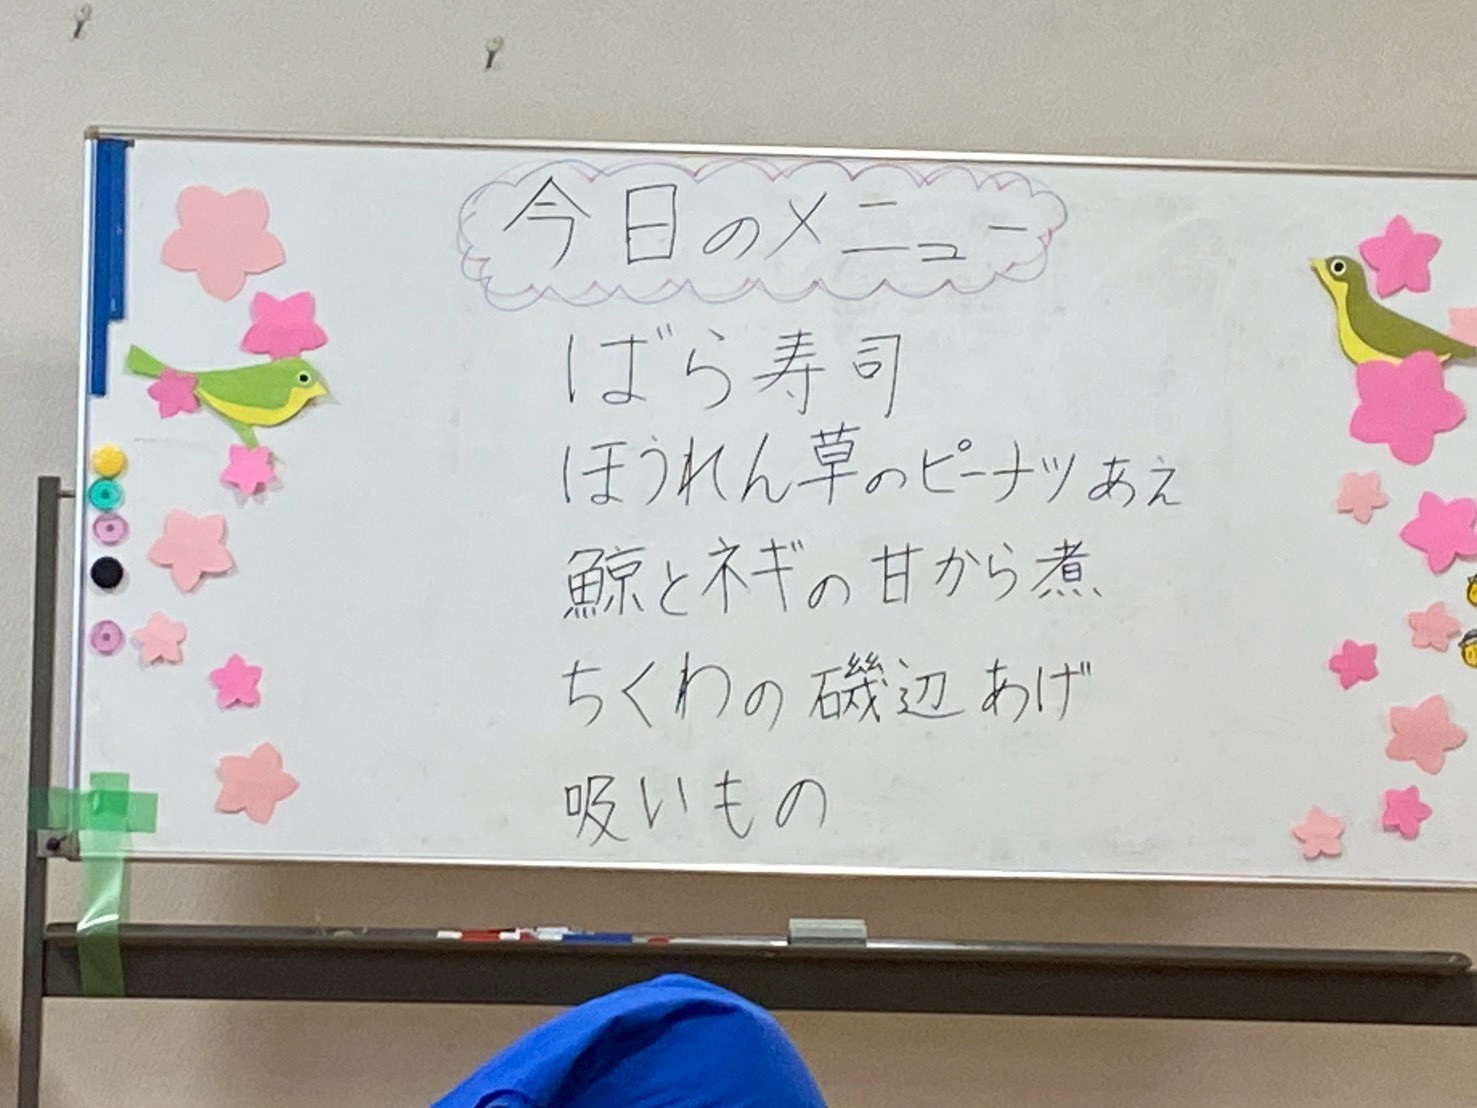 今日のメニュー
ばら寿司
ほうれん草のピーナツあえ
鯨とネギの甘から煮
ちくわの磯辺あげ
吸いもの